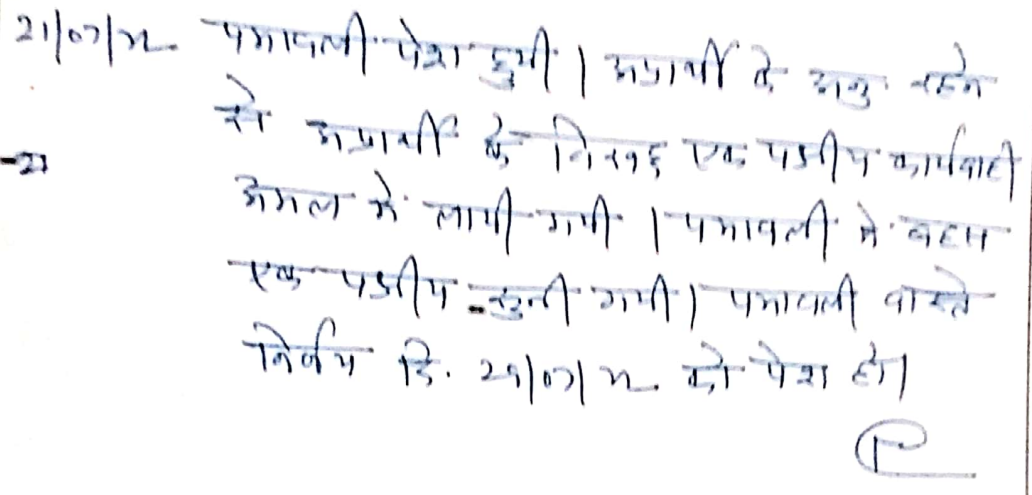 21/07/22 पत्रावली पेश हुयी। अप्रार्थी के अनु. रहने
से अप्रार्थी के विरुद्ध एक पक्षीय कार्यवाही
-22
अमल मे लायी गयी। पत्रावली मे बहस
एक पक्षीय सुनी गयी। पत्रावली वास्ते
निर्णय दि. 29/07/22 को पेश हो।